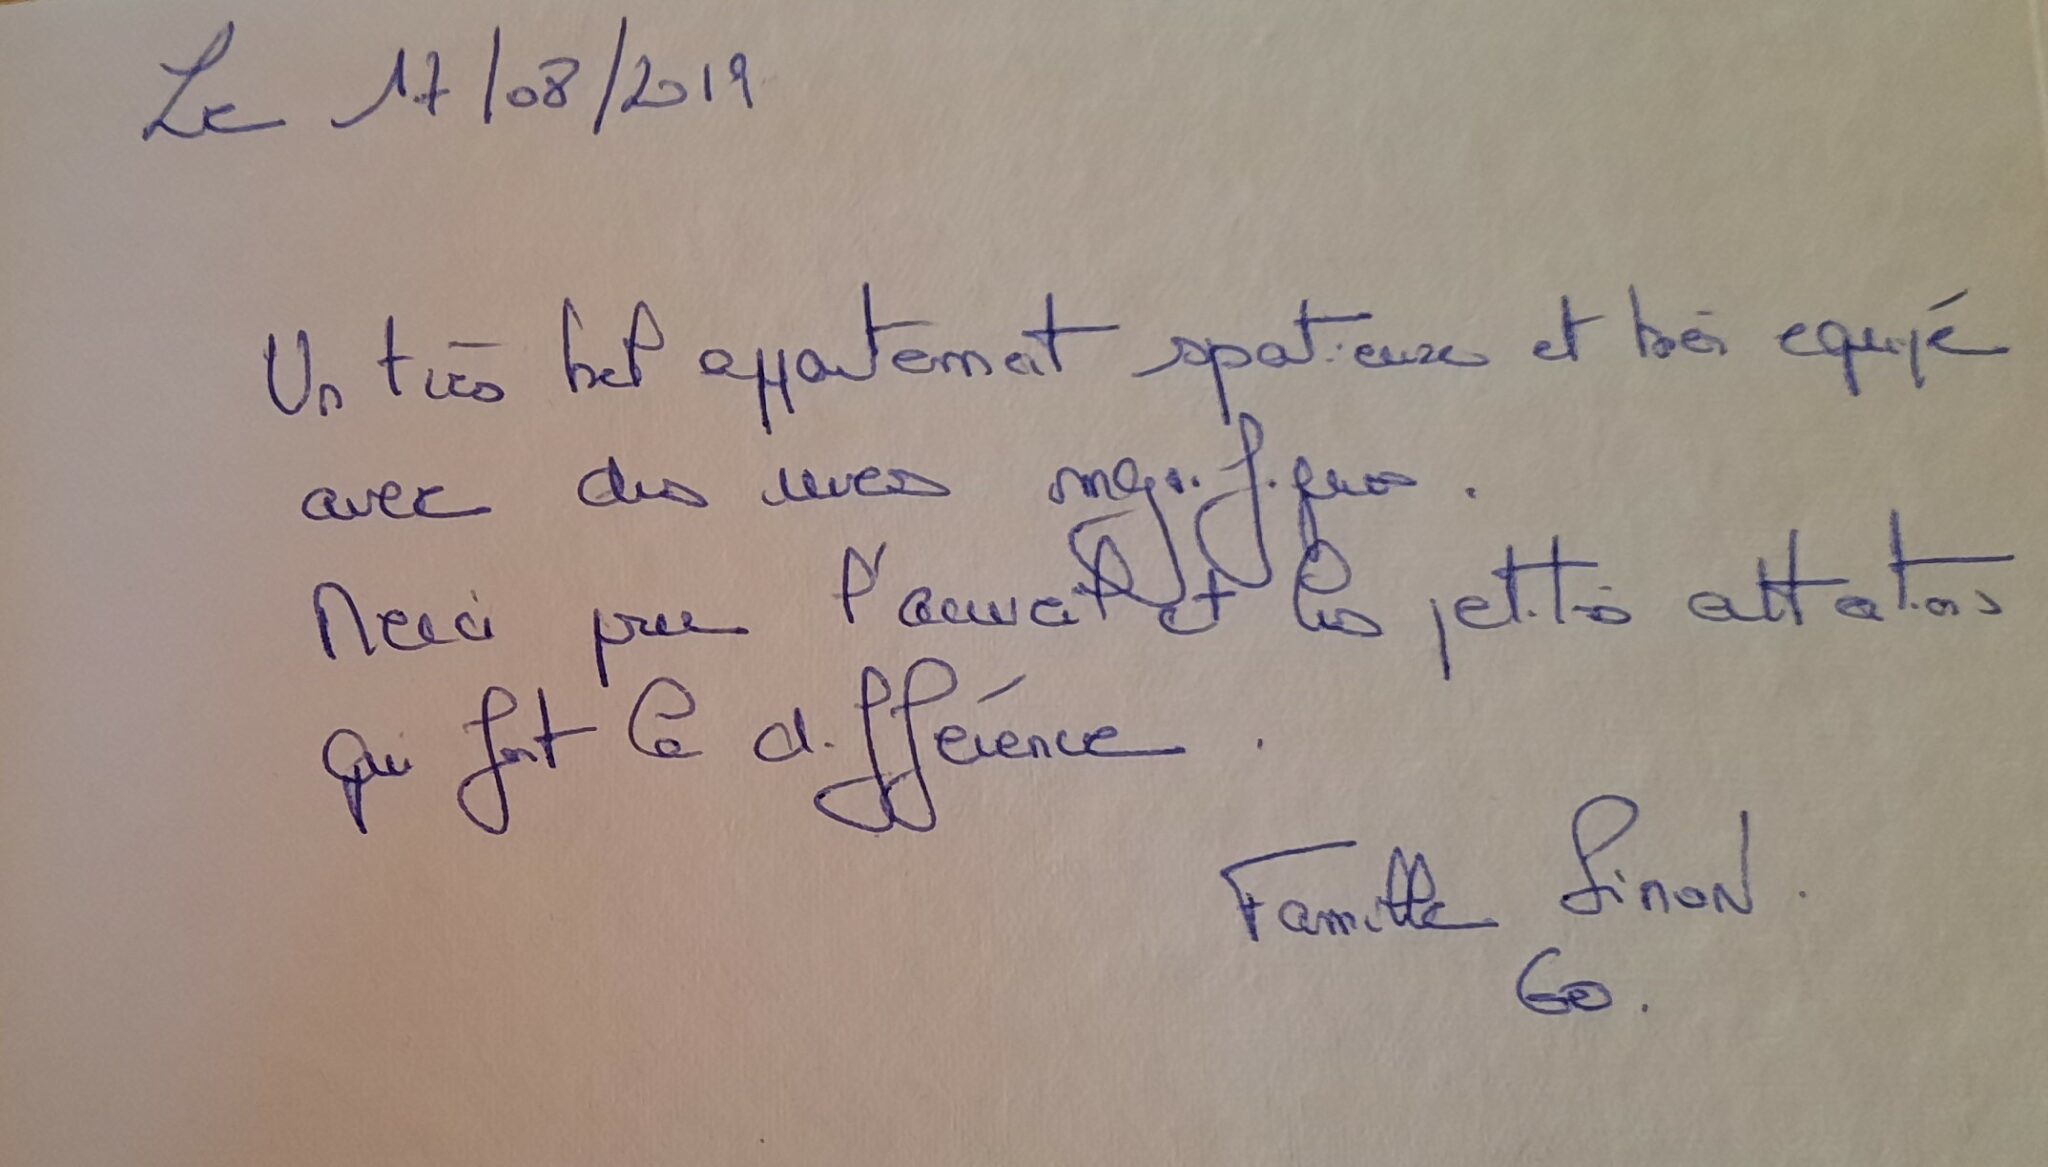 Le 17/08/2019
Un très bel appartement spatieux et bien equipé
avec des vues magnifiques.
Merci pour l'accueil et les petites attentions
qui font la différence.
Famille Simon.
60.